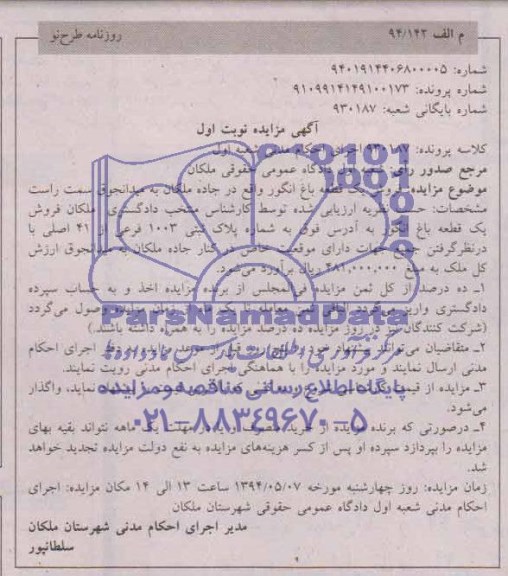 م الف ۹۴/۱۴۲
روزنامه طرح‌نو
شماره: ۹۴۰۱۹۱۴۴۰۶۸۰۰۰۰۵
شماره پرونده: ۹۱۰۹۹۱۴۱۴۹۱۰۰۱۷۳
شماره بایگانی شعبه: ۹۳۰۱۸۷
آگهی مزایده نوبت اول
کلاسه پرونده: ۹۳۰۱۸۷ اجرای احکام مدنی شعبه اول
مرجع صدور رأی: شعبه اول دادگاه عمومی حقوقی ملکان
موضوع مزایده: فروش یک قطعه باغ انگور واقع در جاده ملکان به میدانجوق سمت راست
مشخصات: حسب نظریه ارزیابی شده توسط کارشناس منتخب دادگستری ملکان فروش
یک قطعه باغ انگور به آدرس فوق به شماره پلاک ثبتی ۱۰۰۳ فرعی از ۴۱ اصلی با
درنظرگرفتن جمیع جهات دارای موقعیت خاص در کنار جاده ملکان به میدانجوق ارزش
کل ملک به مبلغ ۴۸۱,۰۰۰,۰۰۰ ریال برآورد می‌شود.
۱ـ ده درصد از کل ثمن مزایده فی‌المجلس از برنده مزایده اخذ و به حساب سپرده
دادگستری واریز می‌گردد الباقی ثمن معامله تا یک ماه از زمان مزایده وصول می‌گردد
(شرکت کنندگان نیز در روز مزایده ده درصد مزایده را به همراه داشته باشند.)
۲ـ متقاضیان می‌توانند پیشنهاد خود را قبل از مزایده به دفتر اجرای احکام
مدنی ارسال نمایند و مورد مزایده را با هماهنگی اجرای احکام مدنی رویت نمایند.
۳ـ مزایده از قیمت پایه شروع و به کسانی که بالاترین قیمت را پیشنهاد نماید، واگذار
می‌شود.
۴ـ درصورتی که برنده مزایده از خرید منصرف و یا در مهلت یک ماهه نتواند بقیه بهای
مزایده را بپردازد سپرده او پس از کسر هزینه‌های مزایده به نفع دولت مزایده تجدید خواهد
شد.
زمان مزایده: روز چهارشنبه مورخه ۱۳۹۴/۰۵/۰۷ ساعت ۱۳ الی ۱۴ مکان مزایده: اجرای
احکام مدنی شعبه اول دادگاه عمومی حقوقی شهرستان ملکان
مدیر اجرای احکام مدنی شهرستان ملکان
سلطانپور
ParsNamadData
پایگاه اطلاع رسانی مناقصه و مزایده
۰۲۱-۸۸۳۴۹۶۷۰-۵